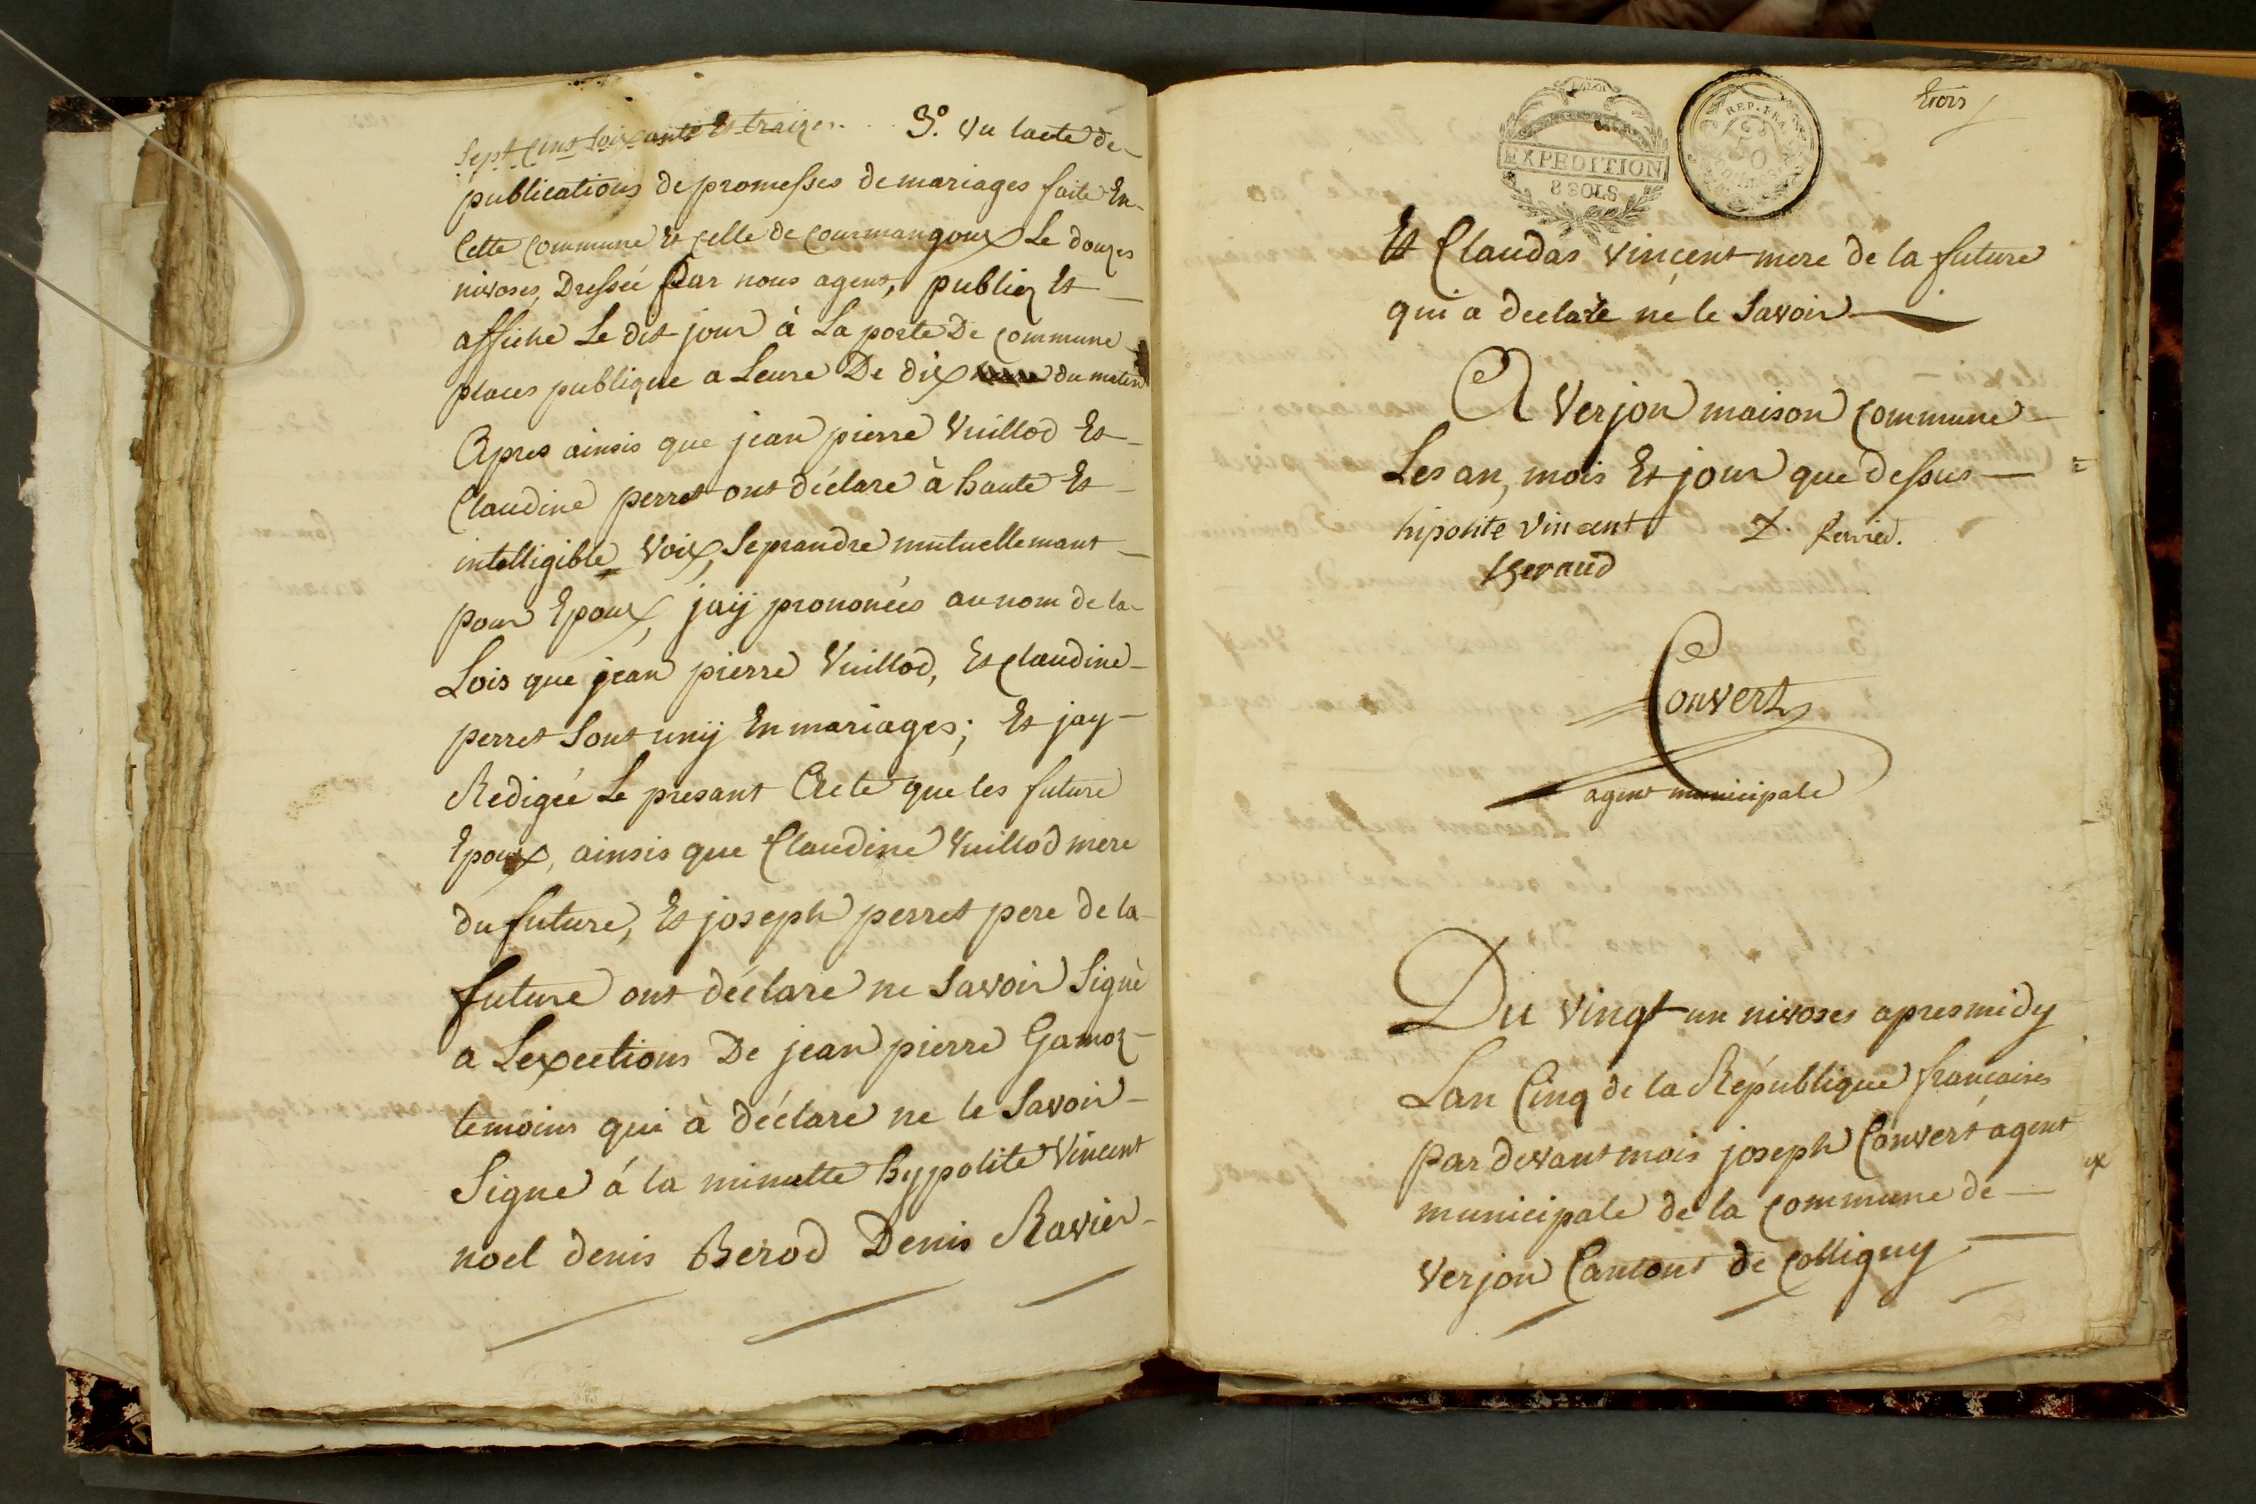 Sept Cens Soixante Et traize. 3.° vu lacte de
publications de promesses de mariages faite En
Cette Commune Et celle de Courmangoux Le douzes
nivoses, Dressée Par nous agent, publiez Et
affiche Le dit jour à La porte De Commune
places publique a Leure De dix du matin
Apres ainsis que jean pierre Vuillod Et
Claudine perret ont déclare à haute Et
intelligible Voix, Se prandre mutuellemant
pour Epoux, jaÿ prononcés au nom de la
Lois que jean pierre Vuillod, Et Claudine
perret Sont unÿ En mariages; Et jay
Redigée Le presant Acte que les future
Epoux, ainsis que Claudine Vuillod mere
du future, Et joseph perret pere de la
future ont déclare ne Savoir Signè
a Lexections De jean pierre Gamoz
temoins qui à déclare ne le Savoir
Signe á la minutte hypolite Vincent
noel denis Berod Denis Ravier
EXPEDITION
8 SOLS
REP. FRA.
50
trois
Et Claudas vincent mere de la future
qui a declare né le Savoir
A Verjon maison Commune
Les an, mois Et jour que dessus
hipolite vincent
Convert
agent municipale
Du vingt un nivoses apres midy
Lan Cinq de la République francaises
Par devant mois joseph Convert agent
municipale de la Commune de
Verjon Cantont de Colligny